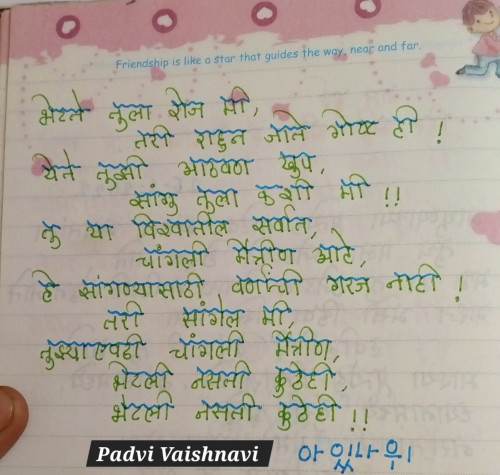 Friendship is like a star that guides the way, near and far.
भेटते तुला रोज मी,
तरी राहुन जाते गोष्ट ही !
येते तुझी आठवण खुप,
सांगु तुला कशी मी !!
तु या विश्वातील सर्वात,
चांगली मैत्रीण आहे,
हे सांगण्यासाठी वर्णाची गरज नाही !
तरी सांगेल मी,
तुझ्याएवढी चांगली मैत्रीण,
भेटली नसली कुठेही,
भेटली नसली कुठेही !!
Padvi Vaishnavi